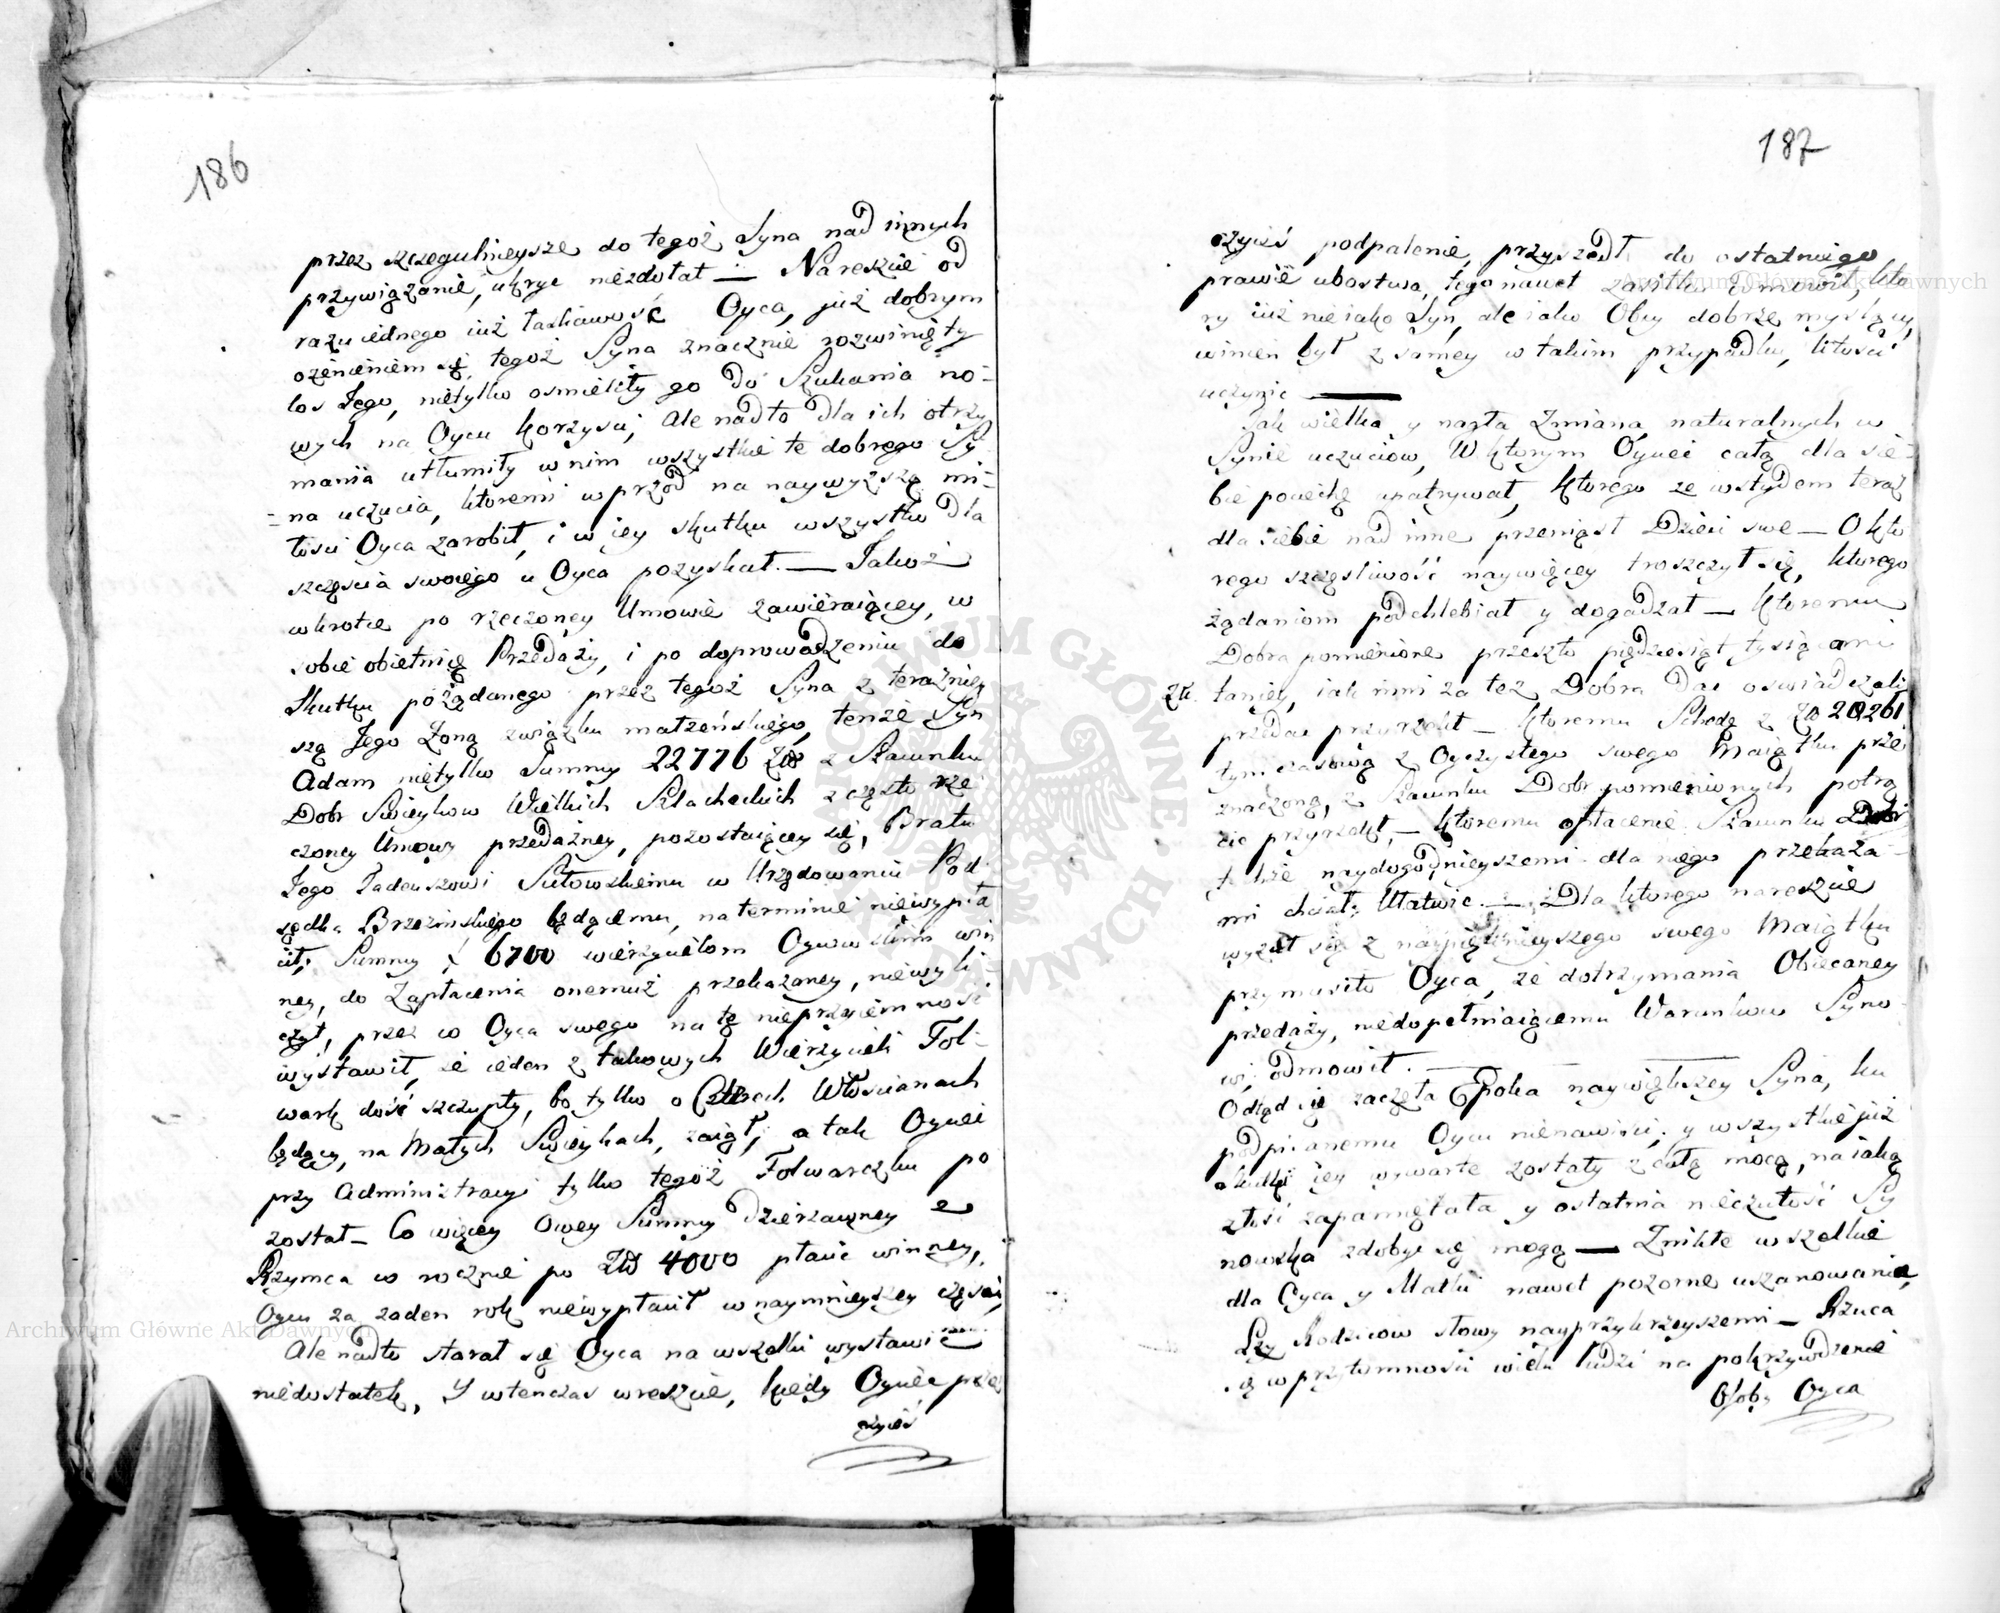 186
przez szczegulnieysze do tegoż Syna nad innych
przywiązanie, ukryc niezdołał — Nareszcie od
razu iednego iuż łaskawość Oyca, już dobrym
ożenieniem się, tegoż Syna znacznie rozwinięty
los Jego, nietylko osmieliły go do Szukania no-
wych na Oycu korzysci, ale nadto dla ich otrzy
mania utłumiły w nim wszystkie te dobrego Sy
na uczucia, ktoremi wprzód na naywyższą mi-
łosci Oyca zarobił, i w iey skutku wszystko dla
szczęscia swoiego u Oyca pozyskał. — Jakoż
wkrotce po rzeczoney Umowie zawieraiącey, w
sobie obietnicę Przedaży, i po doprowadzeniu do
Skutku pożądanego przez tegoż Syna z teraznięy
szą Jego Żoną związku małżeńskiego, tenże Syn
Adam nietylko Summy 22776 Zło z Szacunku
Dobr Święykow Wielkich Szlacheckich z często rze
czoney Umowy przedażney, pozostaiącey się, Bratu
Jego Tadeuszowi Sułowskiemu w Urzędowaniu Pod-
sędka Brzezinskiego będącemu, na terminie niewypła
cił; Summy 6700 wierzycielom Oycowskim win
ney, do Zapłacenia onemuż przekazaney, niewyli-
czył, przez co Oyca swego na tę nieprzyiemność
wystawił, że ieden z takowych Wierzycieli Fol-
wark dość szczupły, bo tylko o Czterech Włoscianach
będący, na Małych Swięykach, zaiął, a tak Oyciec
przy Administracyi tylko tegoż Folwarczku po
został — Co więcey Owey Summy Dzierżawney
Rzymca w rocznie po Zło 4000 płacić winney,
Oycu za żaden rok niewypłacił w naymnieyszey części,
Ale nadto starał się Oyca na wszelki wystawić
niedostatek, Y wtenczas wreszcie, kiedy Oyciec przez
czyieś
187
czyieś podpalenie, przyszedł do ostatniego
prawie ubostwa, tego nawet zasiłku Odmowił, kto
ry iuż nie iako Syn, ale iako Obcy dobrze myslący,
winien był z samey w takim przypadku, litości
uczynic —
Jak wielka y nagła Zmiana naturalnych w
Synie uczuciow, W ktorym Oyciec całą dla sie-
bie pociechę upatrywał, ktorego ze wstydem teraz
dla siebie nad inne przeniosł Dzieci swe — O kto
rego szczęsliwość naywięcey troszczył się, ktorego
żądaniom podchlebiał y dogadzał — ktoremu
Dobra pomienione przeszło pięćdziesiąt tysiącami
Zł. taniey, iak inni za też Dobra dac oswiadczali
przedac przyrzekł — ktoremu Schedę z Zło 20261
tymczasową z Oyczystego swego Maiątku prze
znaczoną, z Szacunku Dobr pomenionych potrą
cic przyrzekł, — ktoremu opłacenie Szacunku Dobr
tychże naydogodnieyszemi dla niego przekaza-
mi chciał Ułatwic. — Dla ktorego nareszcie
wyzuł się z naypięknieyszego swego Maiątku
przymusiło Oyca, że dotrzymania Obiecaney
przedaży, niedopełniaiącemu Warunkow Syno-
wi, odmowił. —
Odtąd się zaczęła Epoka naywiększey Syna, ku
podpisanemu Oycu nienawisci; y wszystkie już
skutki iey wywarte zostały z całą mocą, na iaką
złość zapamiętała y ostatnia nieczułość Sy
nowska zdobyc się mogą — Znikłe wszelkie
dla Oyca y Matki nawet pozorne uszanowanie,
Łzy Rodzicow słowy nayprzykrzeyszemi — Rzuca
się w przytomności wielu ludzi na pokrzywdzenie
Osoby Oyca